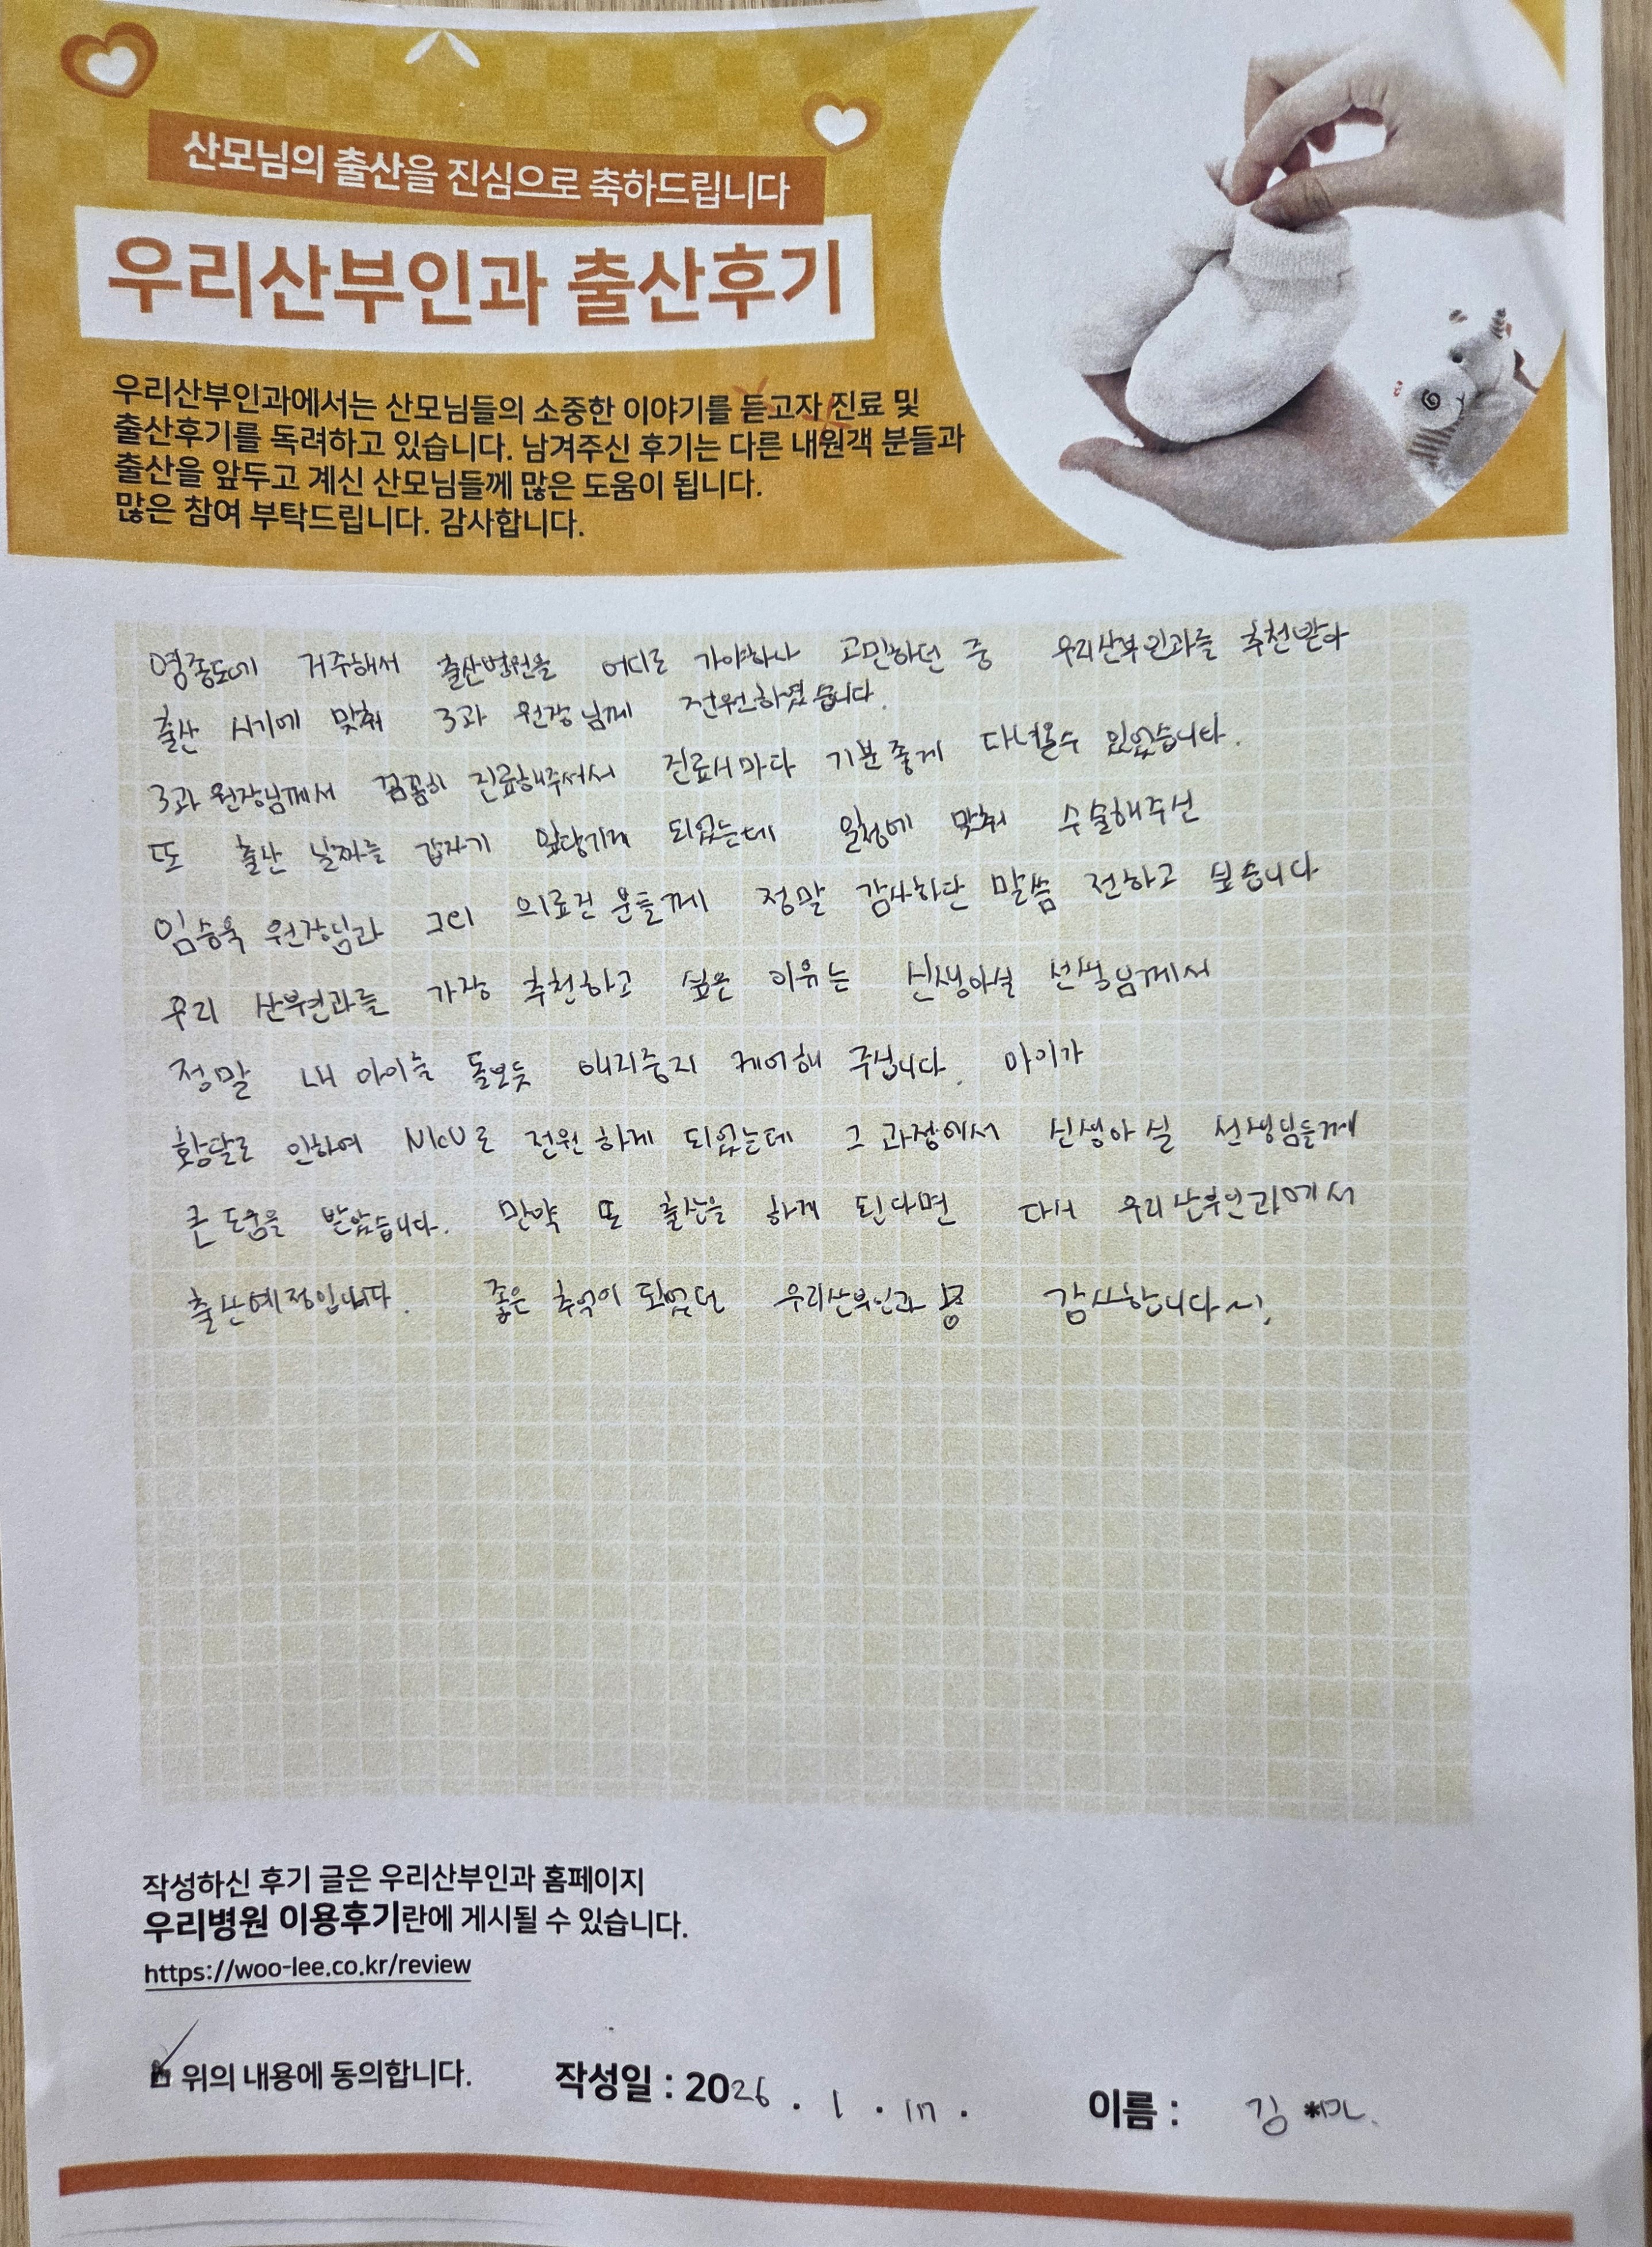 산모님의 출산을 진심으로 축하드립니다
우리산부인과 출산후기
우리산부인과에서는 산모님들의 소중한 이야기를 듣고자 진료 및
출산후기를 독려하고 있습니다. 남겨주신 후기는 다른 내원객 분들과
출산을 앞두고 계신 산모님들께 많은 도움이 됩니다.
많은 참여 부탁드립니다. 감사합니다.
영종도에 거주해서 출산병원을 어디로 가야하나 고민하던 중 우리산부인과를 추천받아
출산 시기에 맞춰 3과 원장님께 전원하였습니다.
3과 원장님께서 꼼꼼히 진료해주셔서 진료시마다 기분좋게 다녀올수 있었습니다.
또 출산 날짜를 갑자기 앞당기게 되었는데 일정에 맞춰 수술해주신
임승욱 원장님과 그외 의료진 분들께 정말 감사하단 말씀 전하고 싶습니다
우리 산부인과를 가장 추천하고 싶은 이유는 신생아실 선생님께서
정말 내 아이를 돌보듯 애지중지 케어해 주십니다. 아이가
황달로 인하여 NICU로 전원하게 되었는데 그 과정에서 신생아실 선생님들께
큰 도움을 받았습니다. 만약 또 출산을 하게 된다면 다시 우리산부인과에서
출산예정입니다. 좋은 추억이 되었던 우리산부인과 감사합니다~!
작성하신 후기 글은 우리산부인과 홈페이지
우리병원 이용후기란에 게시될 수 있습니다.
https://woo-lee.co.kr/review
위의 내용에 동의합니다. 작성일 : 2026 . 1 . 17 . 이름 : 김